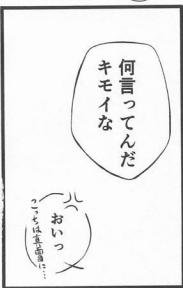 何言ってんだ
キモイな
おいっ
こっちは真面目に…